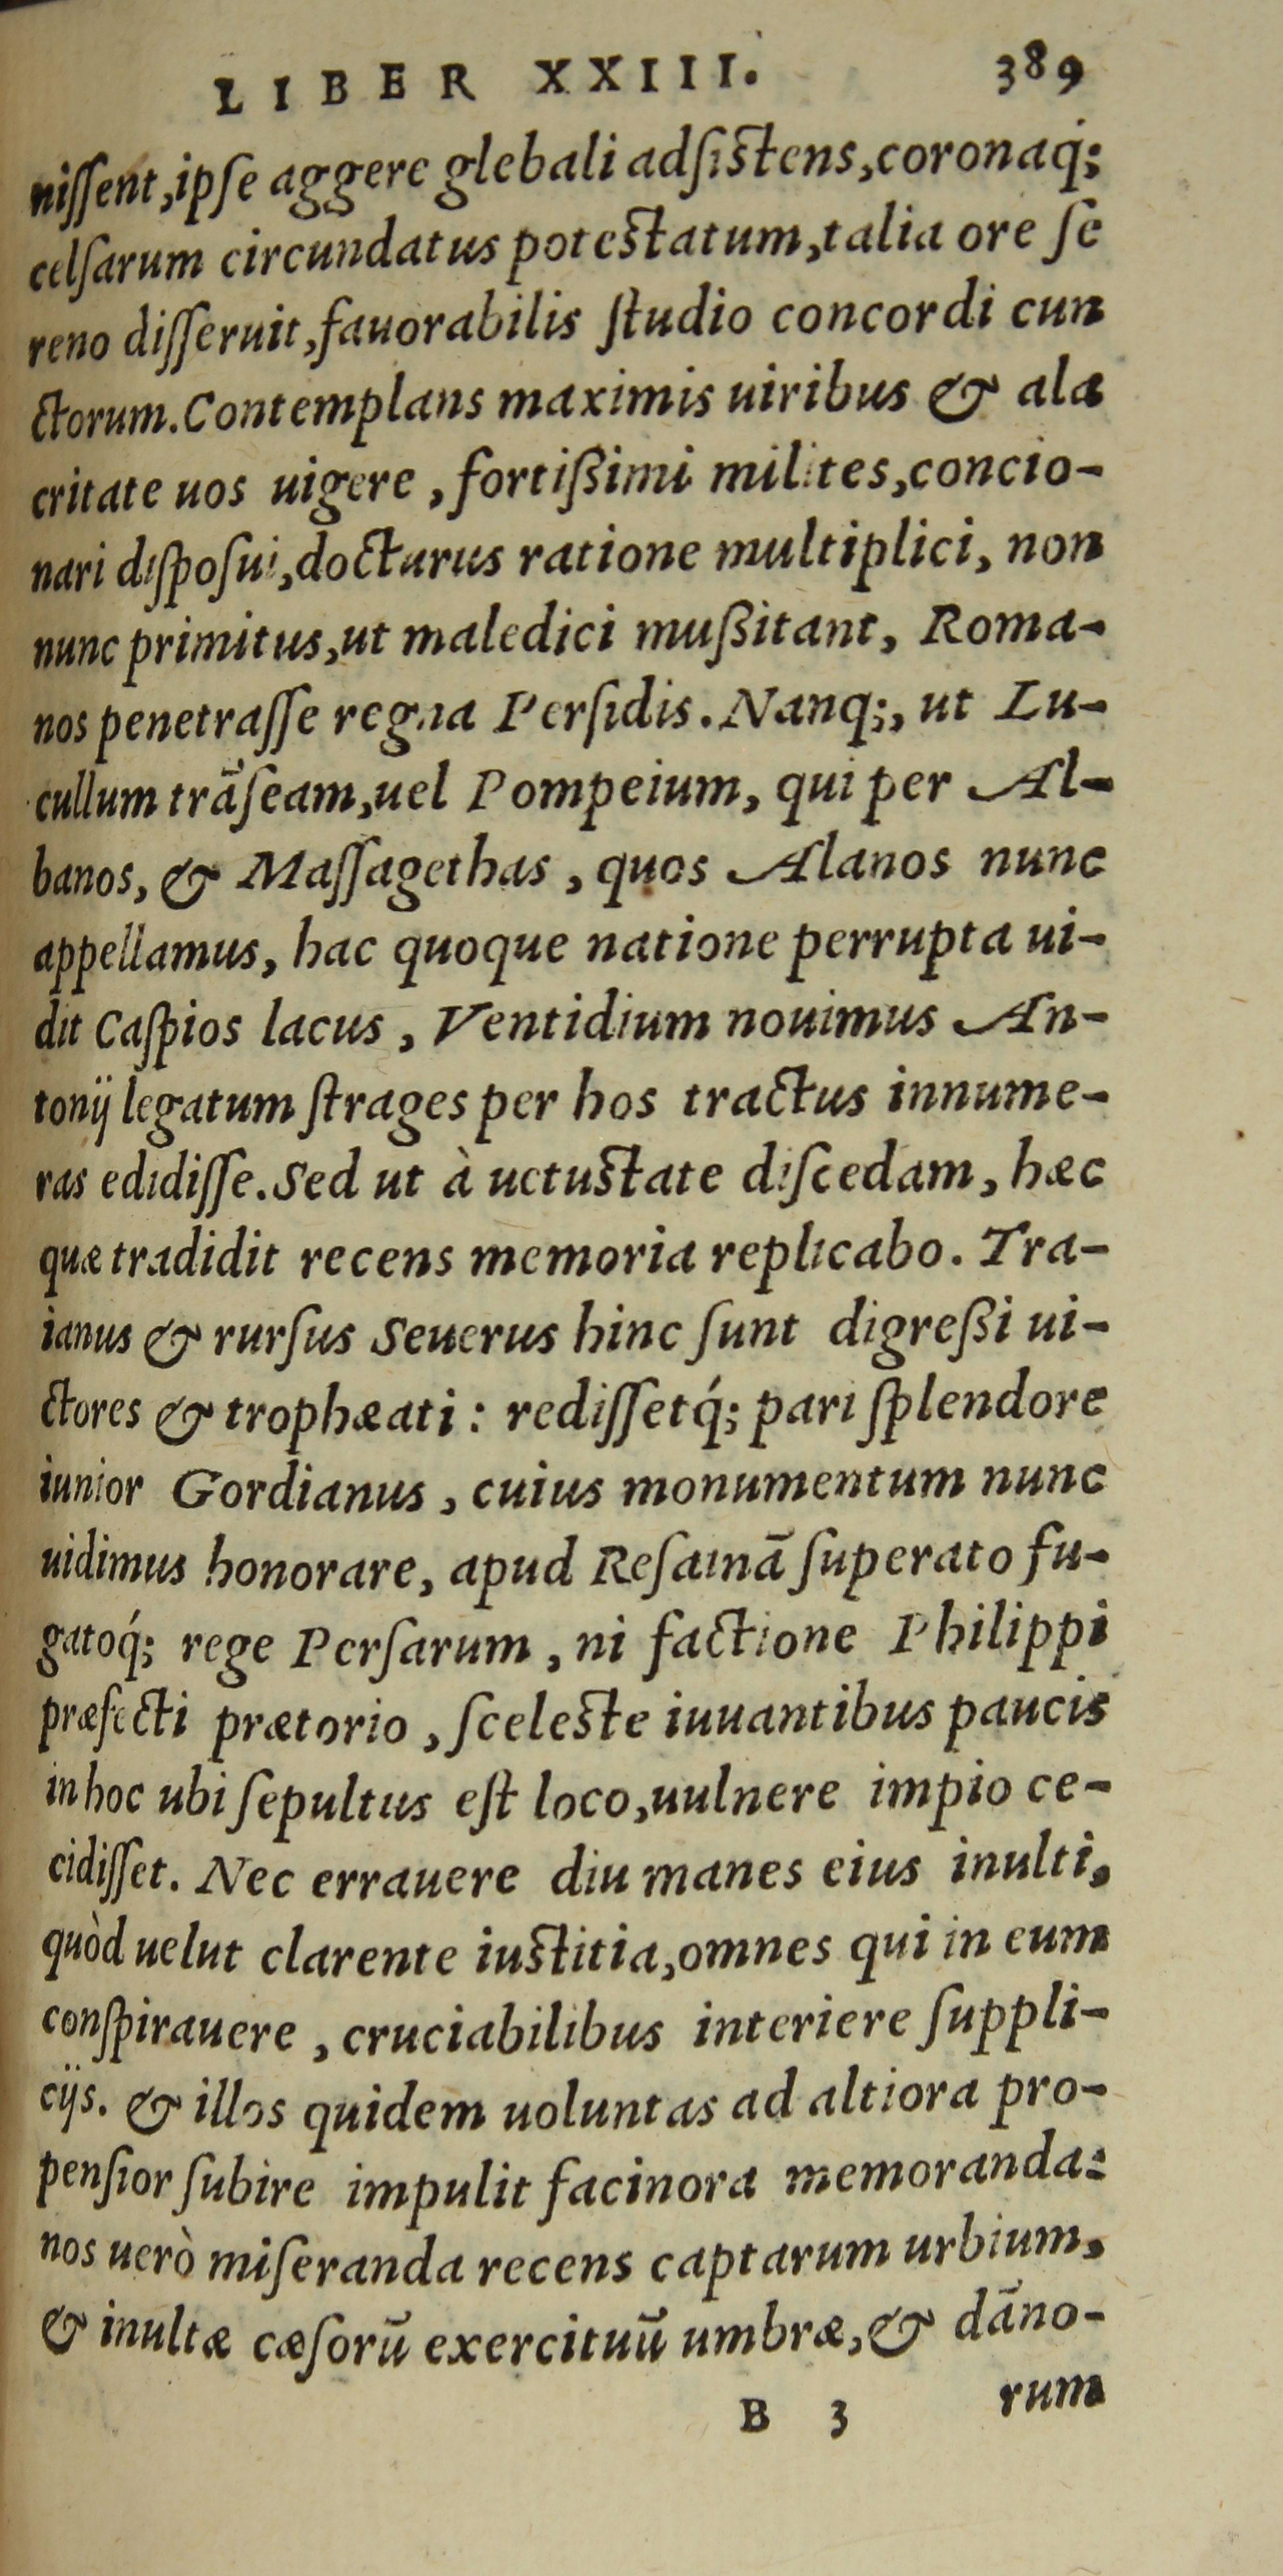 LIBER XXIII. 389
niſſent, ipſe aggere glebali adſiſtens, coronaq́;
celſarum circundatus poteſtatum, talia ore ſe
reno diſſeruit, fauorabilis ſtudio concordi cun
ctorum. Contemplans maximis uiribus & ala
critate uos uigere, fortißimi milites, concio-
nari diſpoſui, docturus ratione multiplici, non
nunc primitus, ut maledici mußitant, Roma-
nos penetraſſe regna Perſidis. Nanq;, ut Lu-
cullum trāſeam, uel Pompeium, qui per Al-
banos, & Maſſagethas, quos Alanos nunc
appellamus, hac quoque natione perrupta ui-
dit Caſpios lacus, Ventidium nouimus An-
tonij legatum ſtrages per hos tractus innume-
ras edidiſſe. Sed ut à uetuſtate diſcedam, hæc
quæ tradidit recens memoria replicabo. Tra-
ianus & rurſus Seuerus hinc ſunt digreßi ui-
ctores & trophæati: rediſſetq́; pari ſplendore
iunior Gordianus, cuius monumentum nunc
uidimus honorare, apud Reſainā ſuperato fu-
gatoq́; rege Perſarum, ni factione Philippi
præfecti prætorio, ſceleſte iuuantibus paucis
in hoc ubi ſepultus eſt loco, uulnere impio ce-
cidiſſet. Nec errauere diu manes eius inulti,
quòd uelut clarente iuſtitia, omnes qui in eum
conſpirauere, cruciabilibus interiere ſuppli-
cijs. & illos quidem uoluntas ad altiora pro-
penſior ſubire impulit facinora memoranda:
nos uerò miſeranda recens captarum urbium,
& inultæ cæſorū exercituū umbræ, & dāno-
B 3 rum